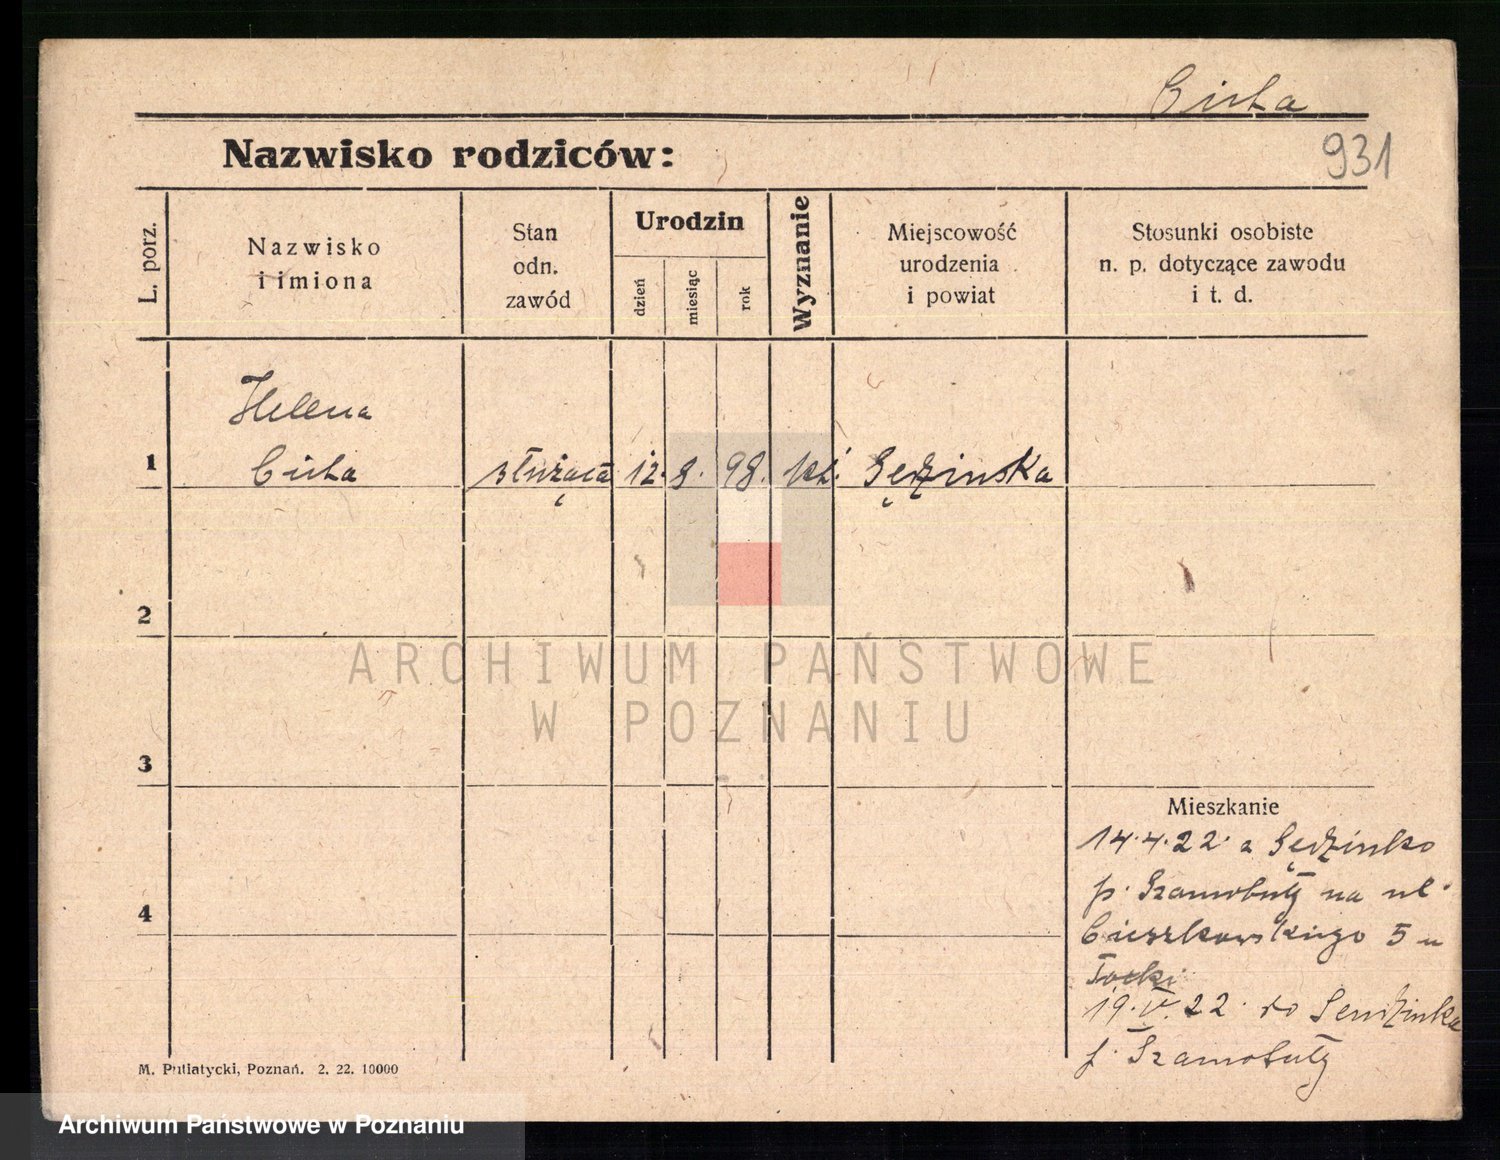 Cicha
Nazwisko rodziców:
931
L. porz.
Nazwisko
i imiona
Stan
odn.
zawód
Urodzin
dzień
miesiąc
rok
Wyznanie
Miejscowość
urodzenia
i powiat
Stosunki osobiste
n. p. dotyczące zawodu
i t. d.
Helena
1 Cicha służąca 12. 8. 98. kt. Sędzinska
2
ARCHIWUM PAŃSTWOWE
W POZNANIU
3
Mieszkanie
14.4.22. z Sędzinko
p. Szamotuły na ul.
4
Cieszkowskiego 5 u
19.V.22. do Sendzinka
p. Szamotuły
M. Putiatycki, Poznań. 2. 22. 10000
Archiwum Państwowe w Poznaniu